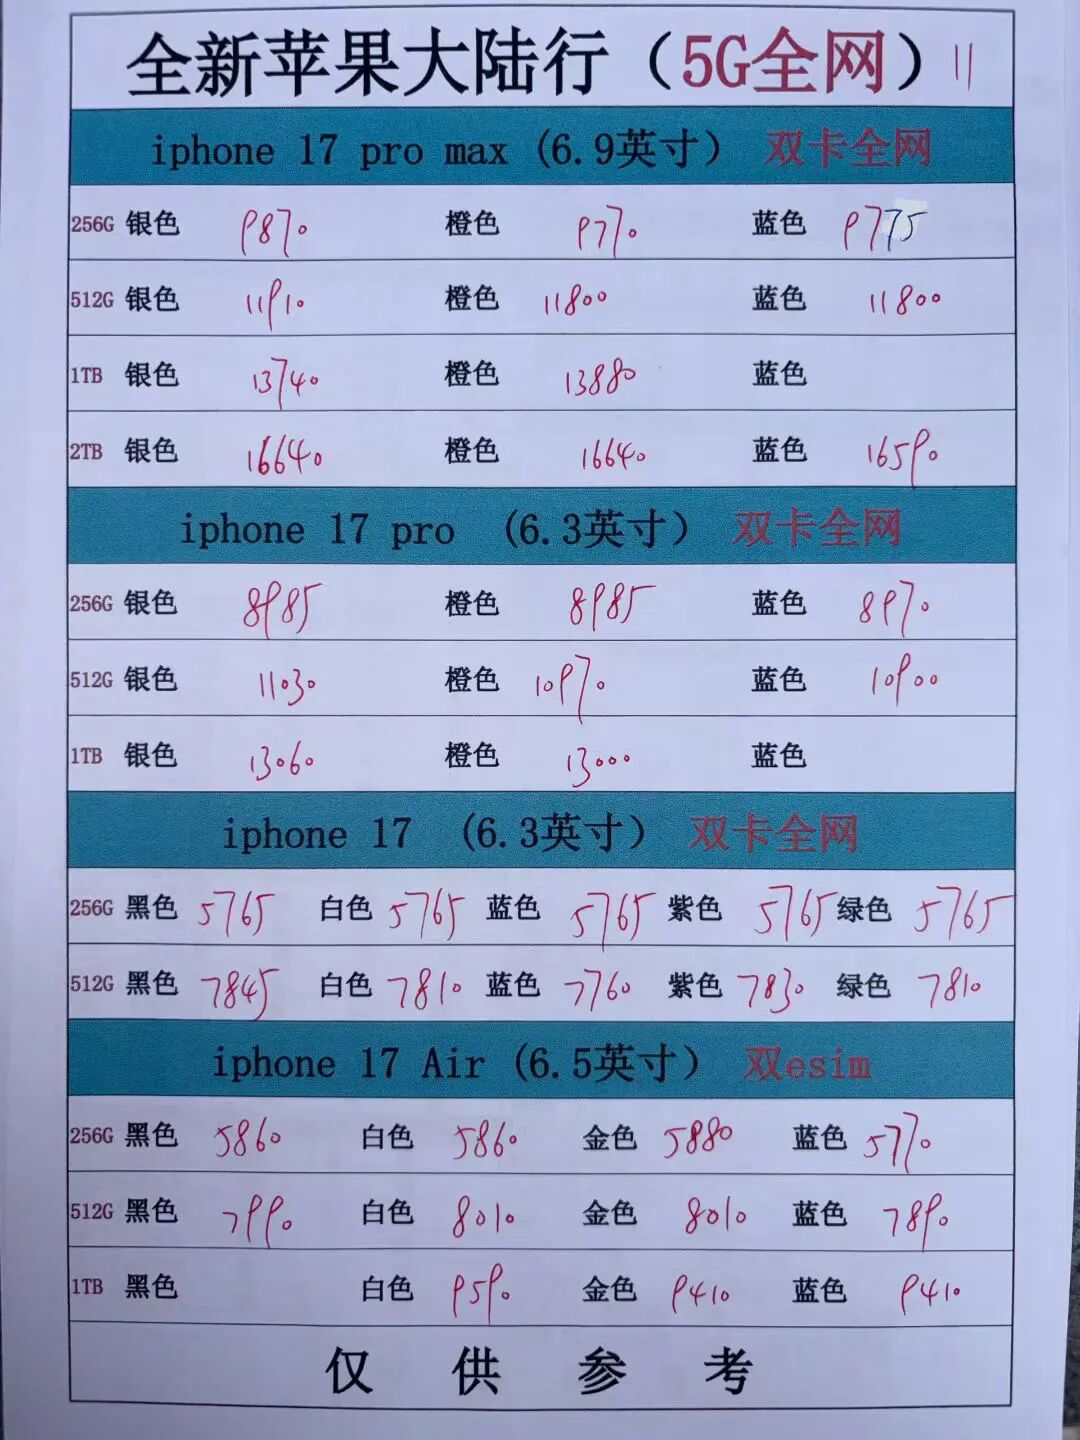 全新苹果大陆行（5G全网）11
iphone 17 pro max (6.9英寸） 双卡全网
256G 银色 9870 橙色 9770 蓝色 9775
512G 银色 11910 橙色 11800 蓝色 11800
1TB 银色 13740 橙色 13880 蓝色
2TB 银色 16640 橙色 16640 蓝色 16590
iphone 17 pro (6.3英寸） 双卡全网
256G 银色 8985 橙色 8985 蓝色 8970
512G 银色 11030 橙色 10970 蓝色 10900
1TB 银色 13060 橙色 13000 蓝色
iphone 17 (6.3英寸） 双卡全网
256G 黑色 5765 白色 5765 蓝色 5765 紫色 5765 绿色 5765
512G 黑色 7845 白色 7810 蓝色 7760 紫色 7830 绿色 7810
iphone 17 Air (6.5英寸） 双esim
256G 黑色 5860 白色 5860 金色 5880 蓝色 5770
512G 黑色 7990 白色 8010 金色 8010 蓝色 7890
1TB 黑色 白色 9590 金色 9410 蓝色 9410
仅供参考